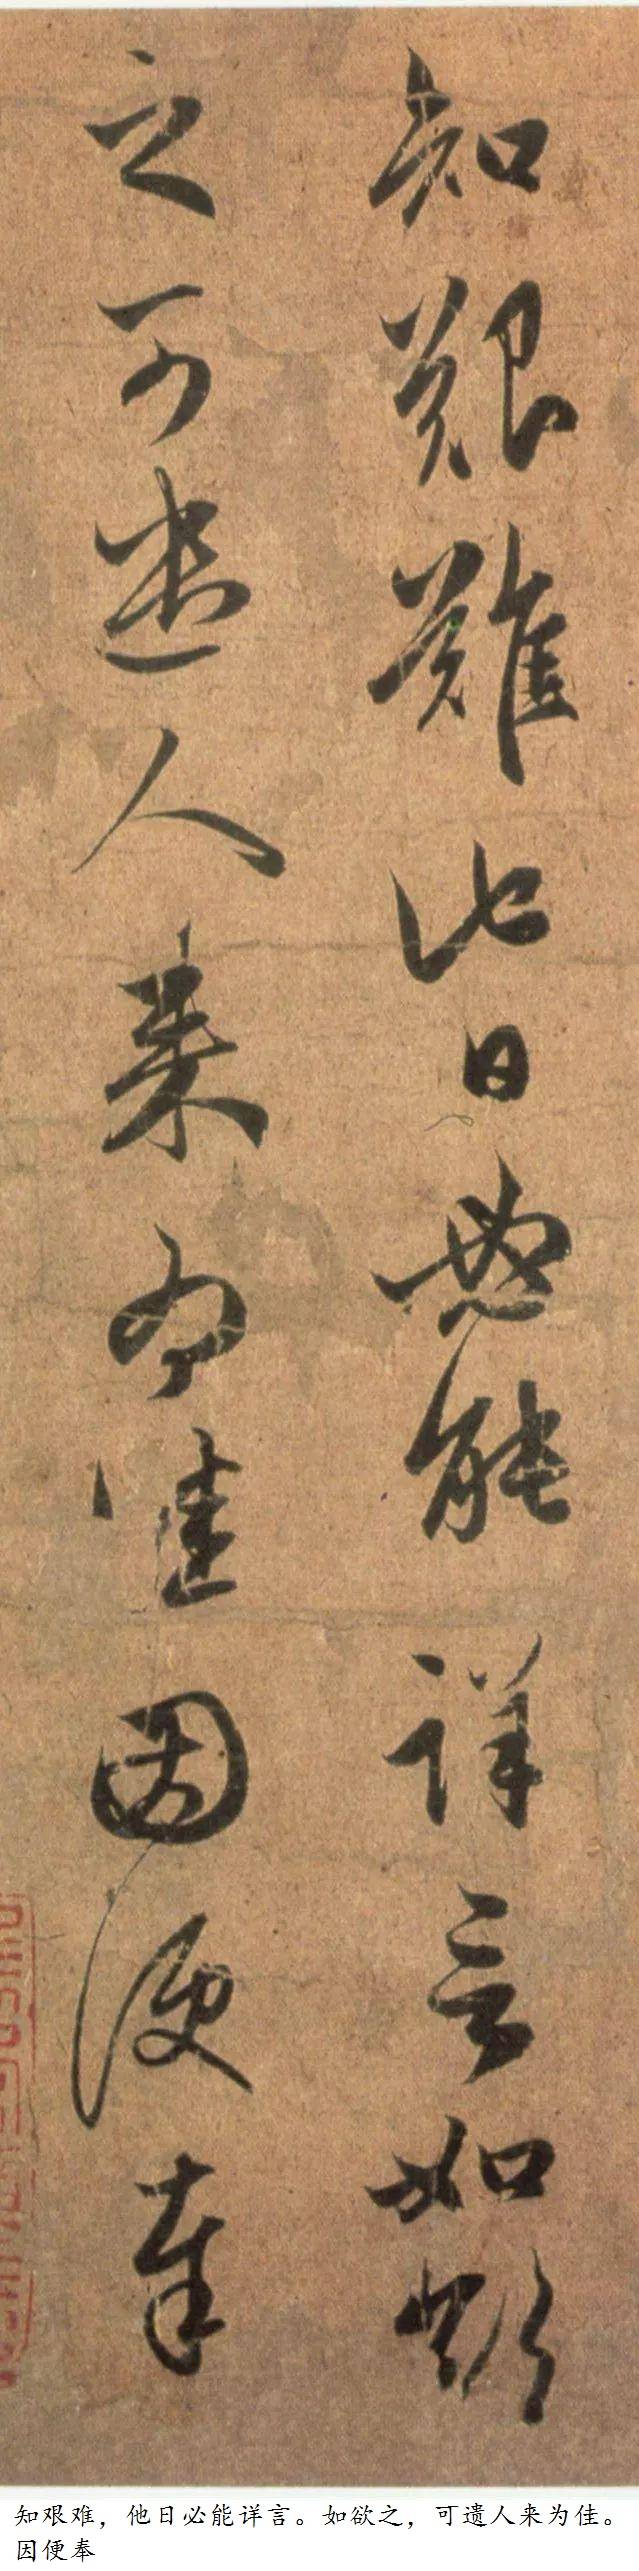 知艱難他日必能詳言如欲
之可遗人来为佳因便奉
知艰难，他日必能详言。如欲之，可遗人来为佳。
因便奉